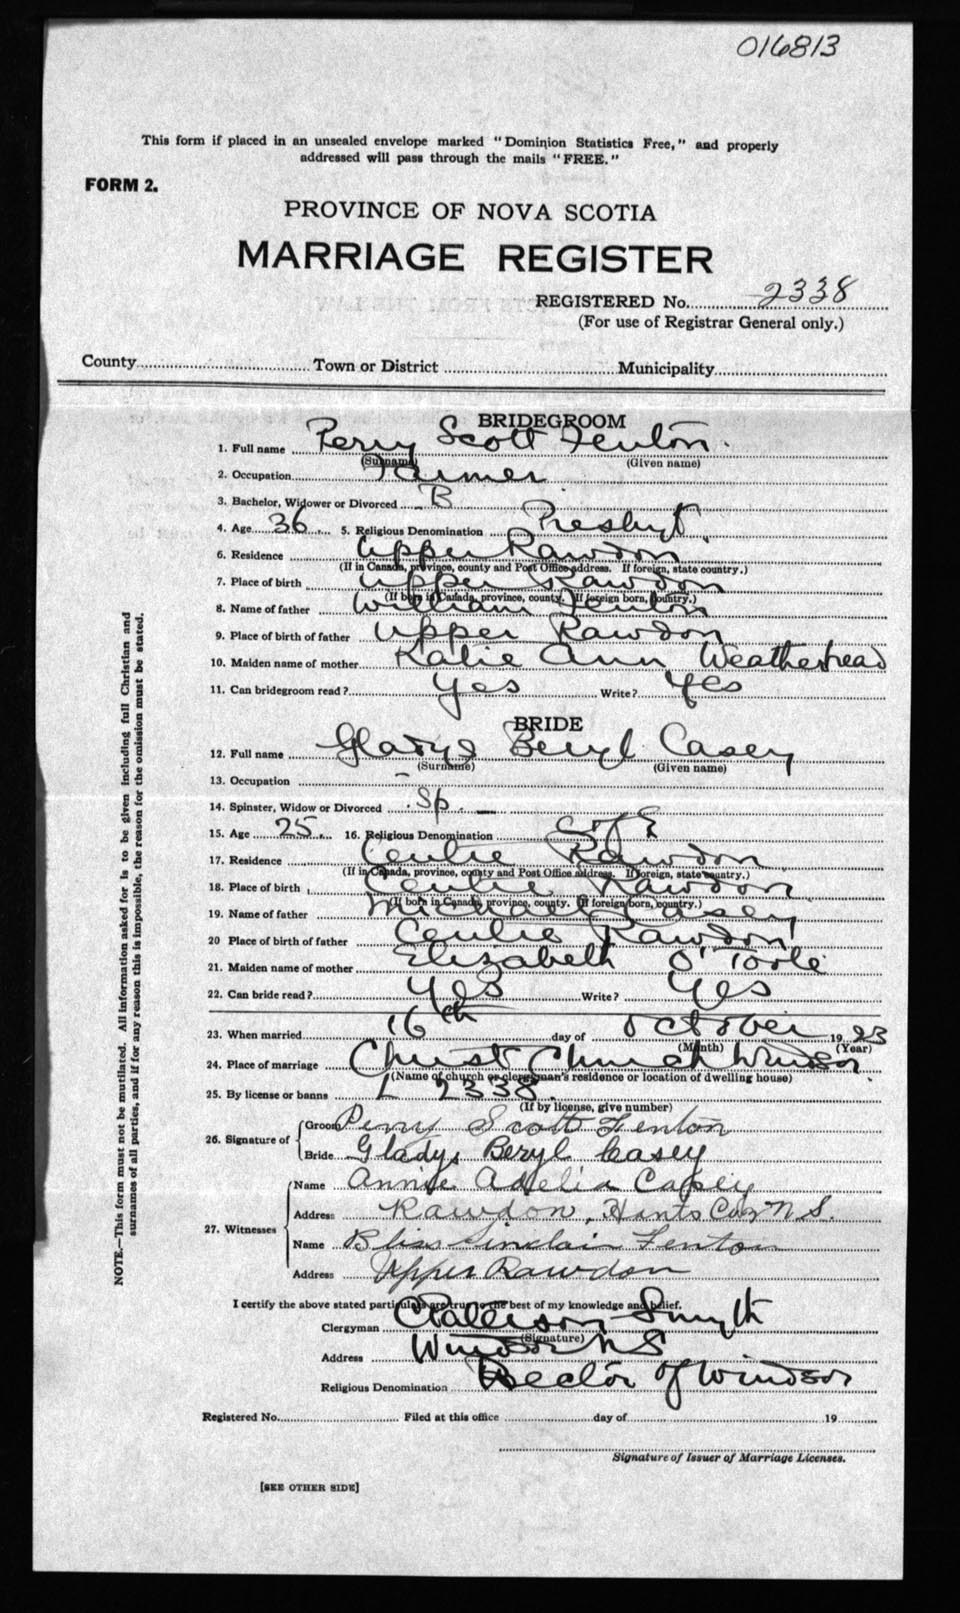 016813
This form if placed in an unsealed envelope marked "Dominion Statistics Free," and properly
addressed will pass through the mails "FREE."
FORM 2.
PROVINCE OF NOVA SCOTIA
MARRIAGE REGISTER
REGISTERED No. 2338
(For use of Registrar General only.)
County Town or District Municipality
BRIDEGROOM
1. Full name Perry Scott Fenton.
(Surname) (Given name)
2. Occupation Farmer
3. Bachelor, Widower or Divorced B
4. Age 36 5. Religious Denomination Presbyt.
6. Residence Upper Rawdon
(If in Canada, province, county and Post Office address. If foreign, state country.)
7. Place of birth Upper Rawdon
(If born in Canada, province, county. If foreign born, country.)
8. Name of father William Fenton
9. Place of birth of father Upper Rawdon
10. Maiden name of mother Katie Ann Weatherhead
11. Can bridegroom read? Yes Write? Yes
BRIDE
12. Full name Gladys Beryl Casey
(Surname) (Given name)
13. Occupation –
14. Spinster, Widow or Divorced Sp. –
15. Age 25 16. Religious Denomination C of E
17. Residence Centre Rawdon
(If in Canada, province, county and Post Office address. If foreign, state country.)
18. Place of birth Centre Rawdon
(If born in Canada, province, county. If foreign born, country.)
19. Name of father Michael Casey
20 Place of birth of father Centre Rawdon
21. Maiden name of mother Elizabeth O'Toole
22. Can bride read? Yes Write? Yes
23. When married 16th day of October 1923
(Month) (Year)
24. Place of marriage Christ Church Windsor.
(Name of church or clergyman's residence or location of dwelling house)
25. By license or banns L 2338.
(If by license, give number)
26. Signature of Groom Perry Scott Fenton
Bride Gladys Beryl Casey
27. Witnesses Name Annie Adelia Casey
Address Rawdon, Hants Co., N.S.
Name Bliss Sinclair Fenton
Address Upper Rawdon
I certify the above stated particulars are true to the best of my knowledge and belief.
Clergyman Patterson Smyth
(Signature)
Address Windsor N S
Religious Denomination Rector of Windsor
Registered No. Filed at this office day of 19
Signature of Issuer of Marriage Licenses.
[SEE OTHER SIDE]
NOTE.—This form must not be mutilated. All information asked for is to be given including full Christian and
surnames of all parties, and if for any reason this is impossible, the reason for the omission must be stated.